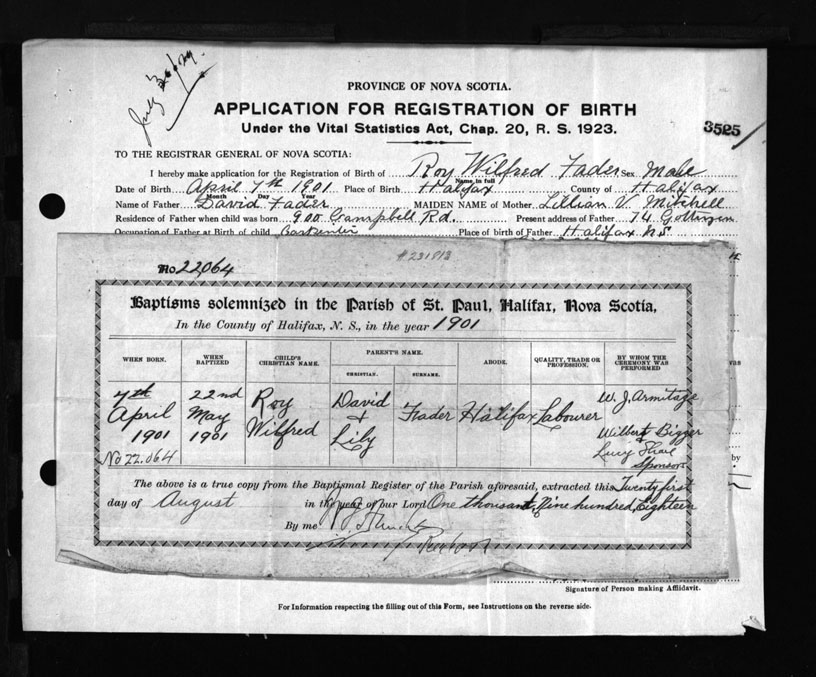 July 30/29.
PROVINCE OF NOVA SCOTIA.
APPLICATION FOR REGISTRATION OF BIRTH
Under the Vital Statistics Act, Chap. 20, R. S. 1923.
3525
TO THE REGISTRAR GENERAL OF NOVA SCOTIA:
I hereby make application for the Registration of Birth of Roy Wilfred Fader Sex Male
Name in full
Date of Birth April 7th 1901 Place of Birth Halifax County of Halifax
Month Day Year
Name of Father David Fader MAIDEN NAME of Mother Lillian V Mitchell
Residence of Father when child was born 900 Campbell Rd. Present address of Father 74 Gottingen
Occupation of Father at Birth of child Carpenter Place of birth of Father Halifax NS
#231813
No 22,064
Baptisms solemnized in the Parish of St. Paul, Halifax, Nova Scotia,
In the County of Halifax, N. S., in the year 1901
WHEN BORN. WHEN BAPTIZED CHILD'S CHRISTIAN NAME. PARENT'S NAME. CHRISTIAN. SURNAME. ABODE. QUALITY, TRADE OR PROFESSION. BY WHOM THE CEREMONY WAS PERFORMED
7th 22nd Roy David W. J. Armitage
April May & Fader Halifax Labourer
1901 1901 Wilfred Lily Wilbert Bigger
No 22.064 Lucy
Sponsors
The above is a true copy from the Baptismal Register of the Parish aforesaid, extracted this Twenty first
day of August in the year of our Lord One thousand, Nine hundred, Eighteen
By me
Signature of Person making Affidavit.
For Information respecting the filling out of this Form, see Instructions on the reverse side.